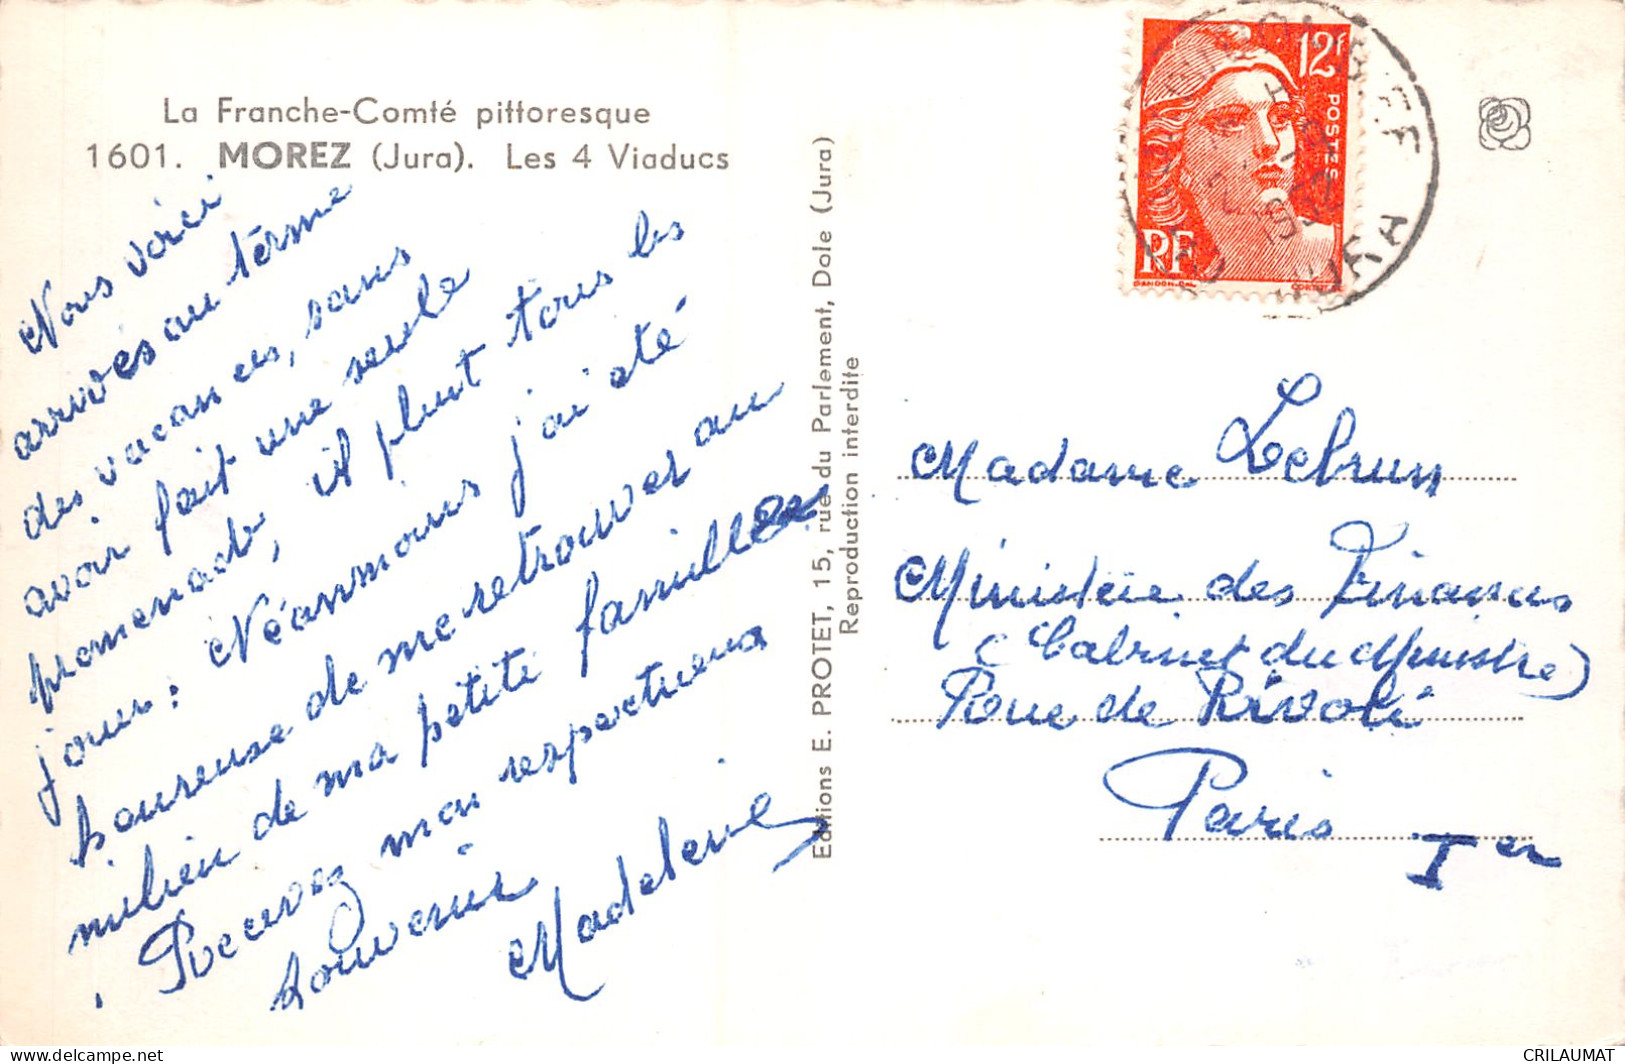 La Franche-Comté pittoresque
1601. MOREZ (Jura). Les 4 Viaducs
Nous voici
arrivés au terme
des vacances, sans
avoir fait une seule
promenade, il pleut tous les
jours : Néanmoins j'ai été
heureuse de me retrouver au
milieu de ma petite famille
Recevez mon respectueux
souvenir
Madeleine
Editions E. PROTET, 15, rue du Parlement, Dole (Jura)
Reproduction interdite
12F
POSTES
RF
GANDON.DEL
CORTOT.SC
1952
JURA
Madame Lebrun
Ministère des Finances
(Cabinet du Ministre)
Rue de Rivoli
Paris
Ier
https://www.delcampe.net
CRILAUMAT